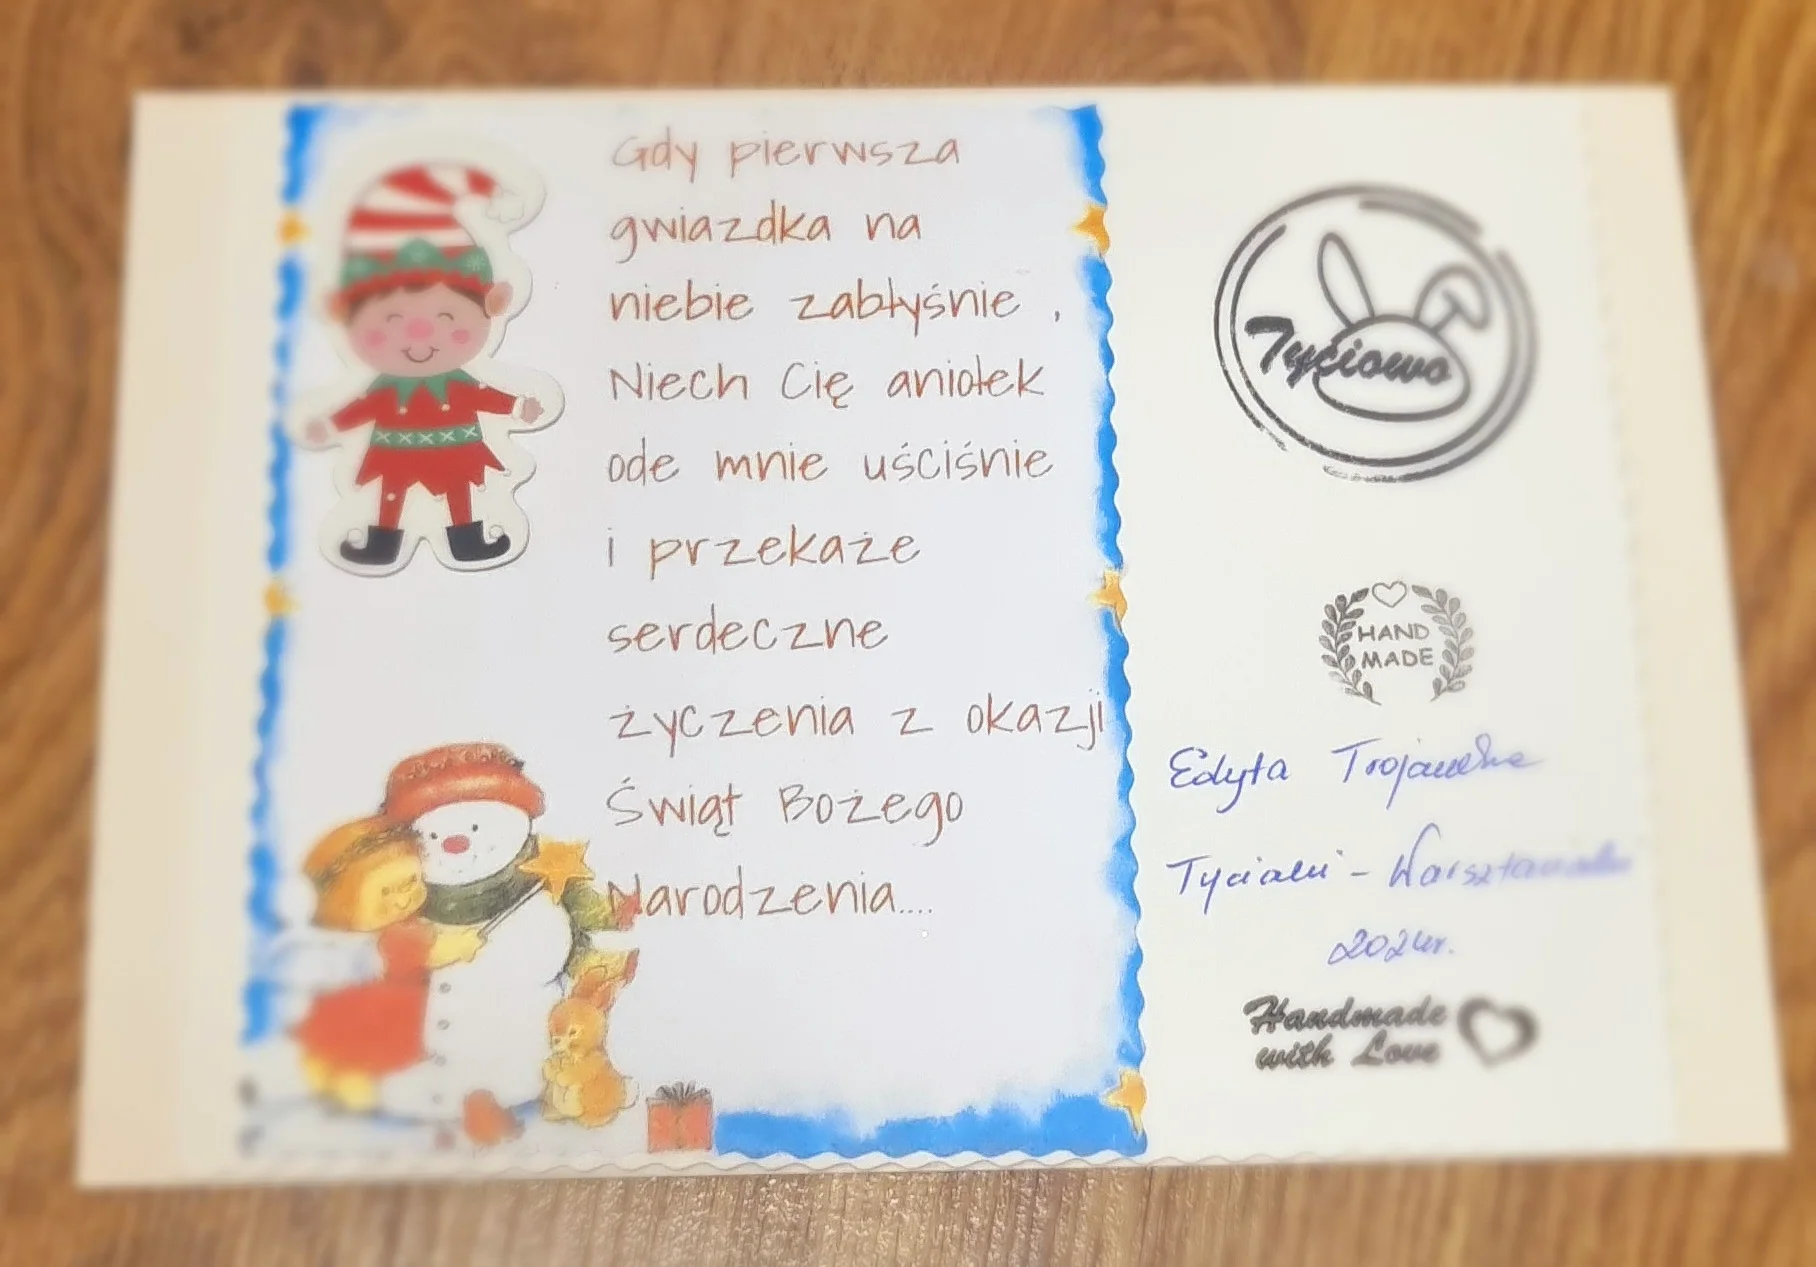 Gdy pierwsza
gwiazdka na
niebie zabłyśnie ,
Niech Cię aniołek
ode mnie uściśnie
i przekaże
serdeczne
życzenia z okazji
Świąt Bożego
Narodzenia....
Tyciowo
HAND
MADE
Edyta Trojanowska
Tyciaki -
2024r.
Handmade
with Love